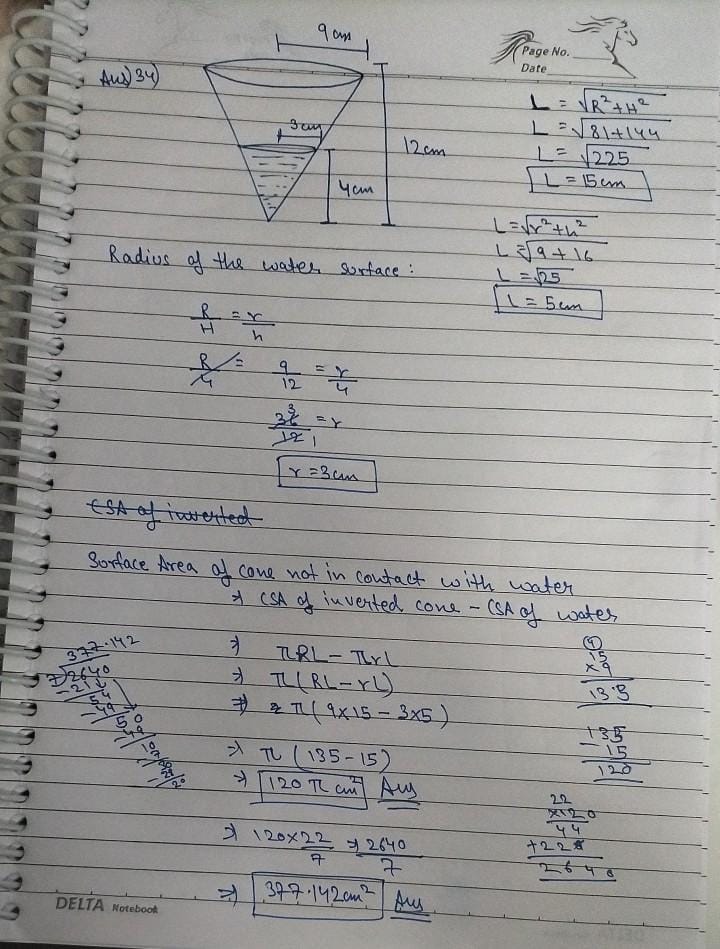 Page No.
Date
Ans) 34)
9 cm
3cm
12cm
4cm
L = √R²+H²
L = √81+144
L = √225
L = 15cm
L = √r²+h²
L = √9+16
L = √25
l = 5cm
Radius of the water surface :
R/H = r/h
R/4 = 9/12 = r/4
36/12 = r
3
1
r = 3cm
CSA of inverted
Surface Area of cone not in contact with water
⇒ CSA of inverted cone - CSA of water
⇒ πRL - πrl
⇒ π(RL - rL)
⇒ π(9×15 - 3×5)
⇒ π (135 - 15)
⇒ 120 π cm² Ans
⇒ 120×22/7 ⇒ 2640/7
⇒ 377.142cm² Ans
377.142
7)2640
21
54
49
50
49
10
7
(4)
15
×9
135
135
- 15
120
22
×120
44
+22
2640
DELTA Notebook